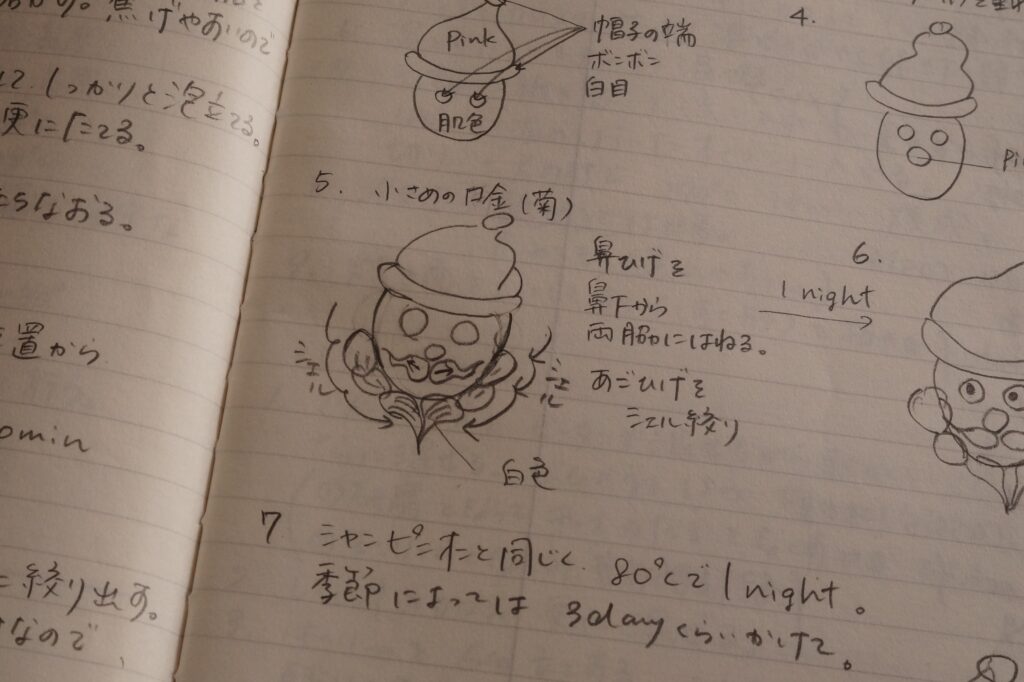 焦げやすいので
しっかりと泡立てる。
更に
なおる。
置から
min
絞り出す。
なので、
Pink
肌色
帽子の端
ボンボン
白目
4.
5. 小さめの口金(菊)
シェル
シェル
鼻ひげを
鼻下から
両脇にはねる。
あごひげを
シェル絞り
白色
1 night
6.
7 シャンピニオンと同じく、80℃で1 night。
季節によっては 3dayくらいかけて。